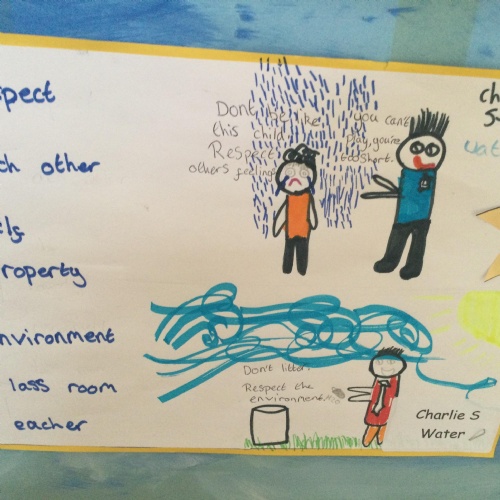 spect
ch other
property
nvironment
lass room
eacher
Dont be like
this child.
Respect
others feelings
you can't
play, you're
too short.
ch
Don't litter.
Respect the
environment.
Charlie S
Water